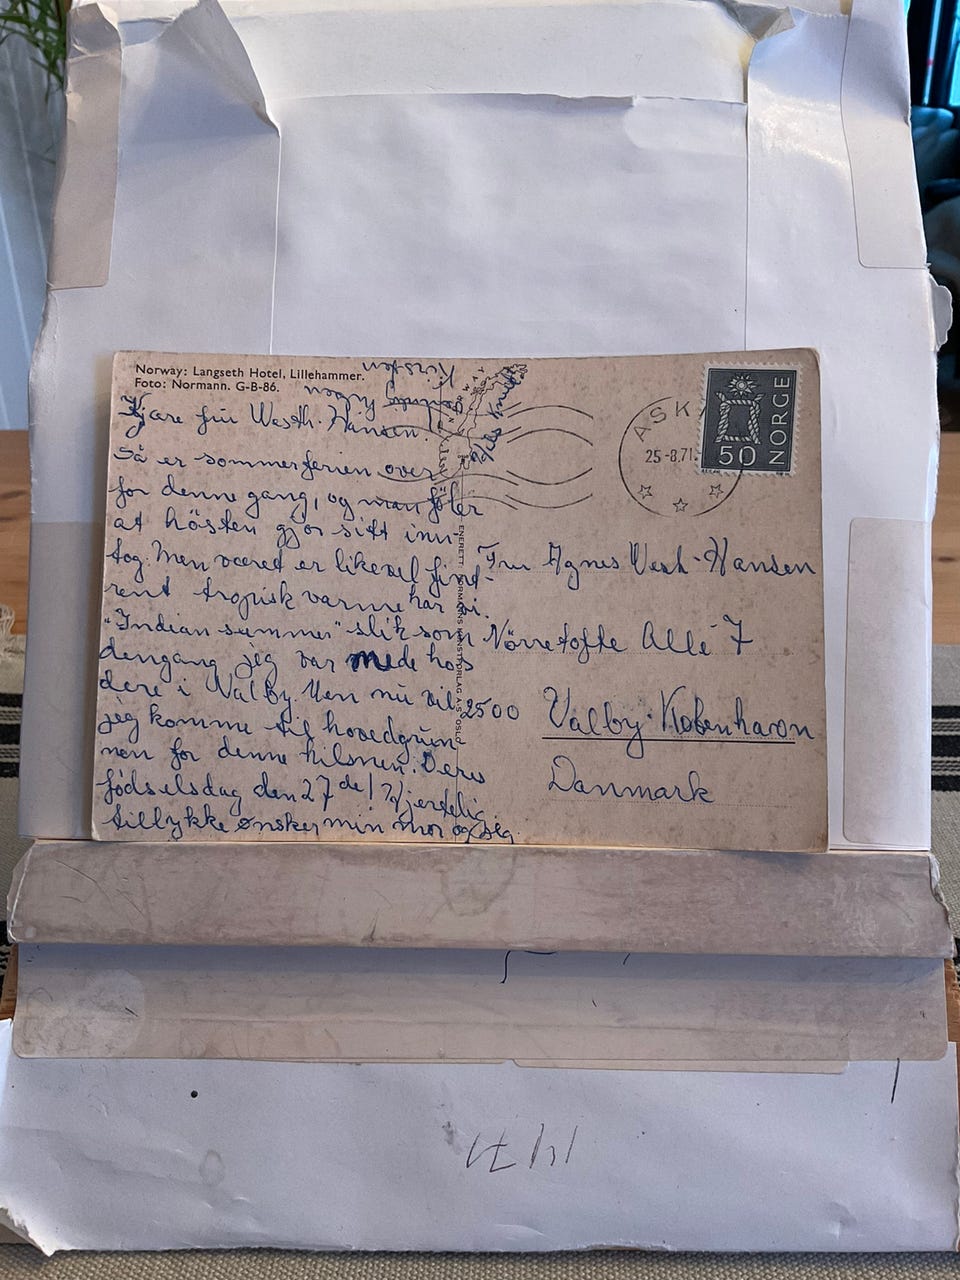 Norway: Langseth Hotel, Lillehammer.
Foto: Normann. G-B-86.
Kjære fru Westh-Hansen.
Så er sommerferien over
for denne gang, og man føler
at hösten gjör sitt inn-
tog. Men været er likevel fint
rent tropisk varme har vi.
"Indian summer" slik som
dengang jeg var nede hos
dere i Valby. Men nu vil
jeg komme til hovedgrun-
nen for denne hilsnen: Deres
födselsdag den 27de! Hjertelig
tillykke ønsker min mor og jeg.
hilsen
Kirsten
NORWAY
ENERETT: NORMANNS KUNSTFORLAG A/S OSLO
ASK
25-8.71
50 NORGE
Fru Agnes Vest-Hansen
Nörretofte Allé 7
2500 Valby-København
Danmark